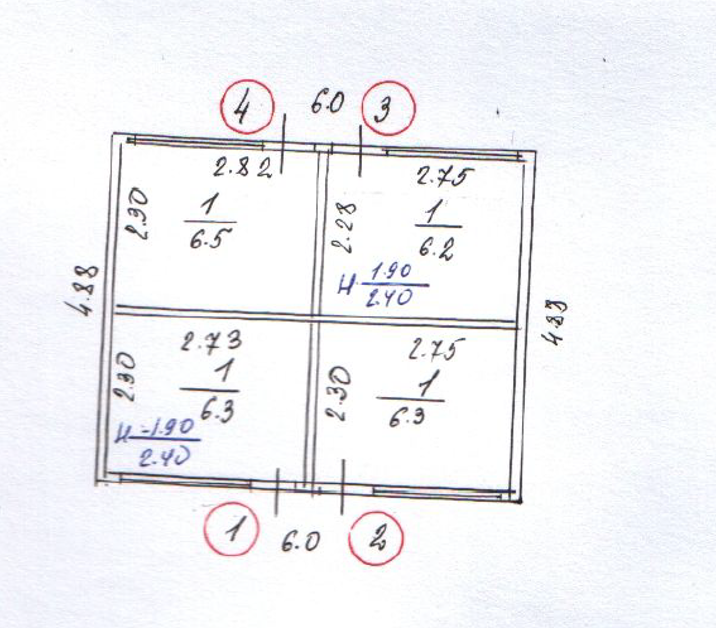 4 6.0 3
2.82
2.75
2.30
1
6.5
2.28
1
6.2
H 1.90
2.40
4.88
4.83
2.73
2.75
2.30
1
6.3
2.30
1
6.3
H-1.90
2.40
1 6.0 2